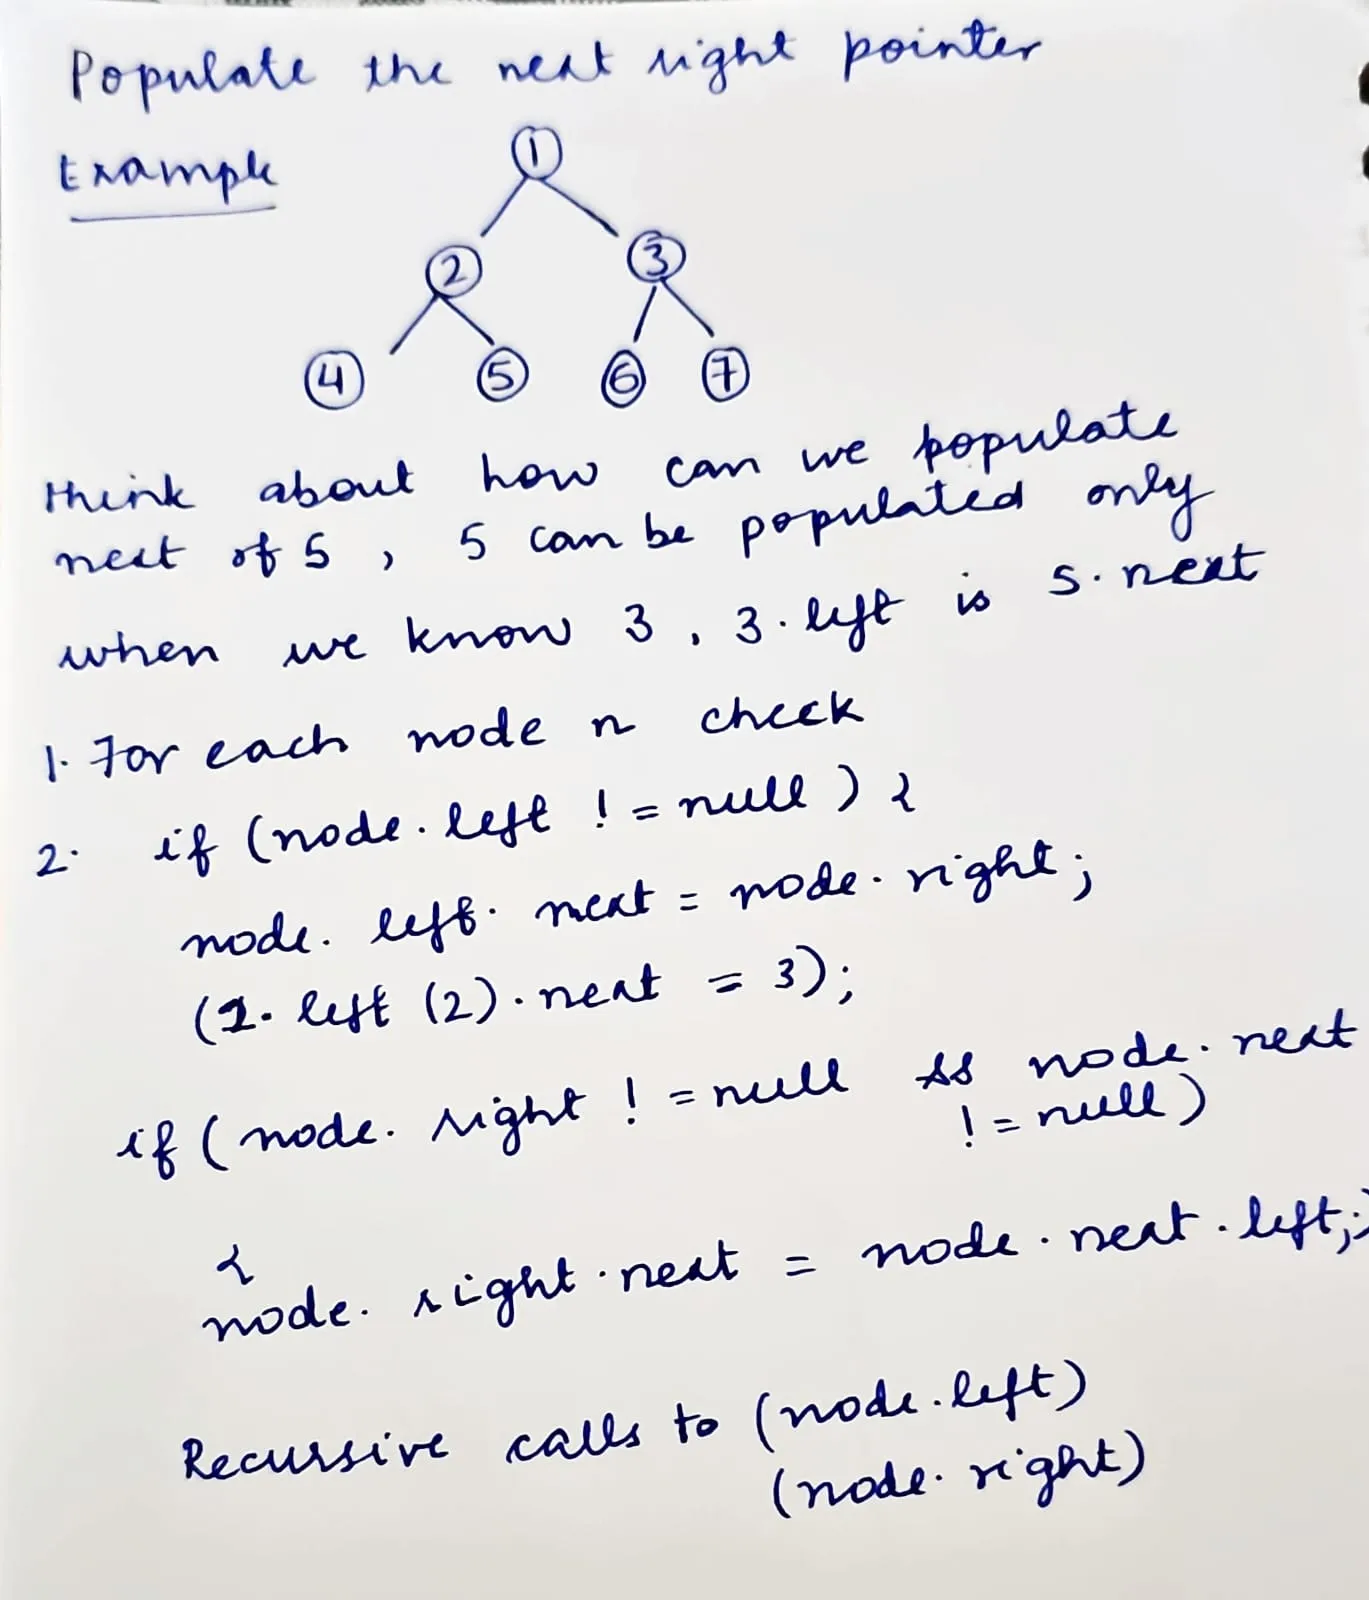 Populate the next right pointer
Example
1
2 3
4 5 6 7
think about how can we populate
next of 5, 5 can be populated only
when we know 3, 3.left is 5.next
1. For each node n check
2. if (node.left != null) {
node.left.next = node.right;
(1.left (2).next = 3);
if (node.right != null && node.next
!= null)
{
node.right.next = node.next.left;}
Recursive calls to (node.left)
(node.right)